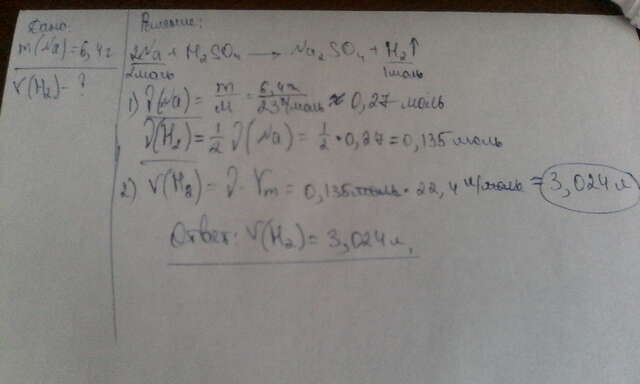 Дано:
m(Na)=6,4г
V(H₂)-?
Решение:
2Na + H₂SO₄ → Na₂SO₄ + H₂↑
2моль 1моль
1) ν(Na) = m/M = 6,4г/23г/моль ≈ 0,27 моль
ν(H₂) = 1/2 ν(Na) = 1/2 • 0,27 = 0,135 моль
2) V(H₂) = ν • Vm = 0,135моль • 22,4 л/моль = 3,024 л
Ответ: V(H₂) = 3,024 л.